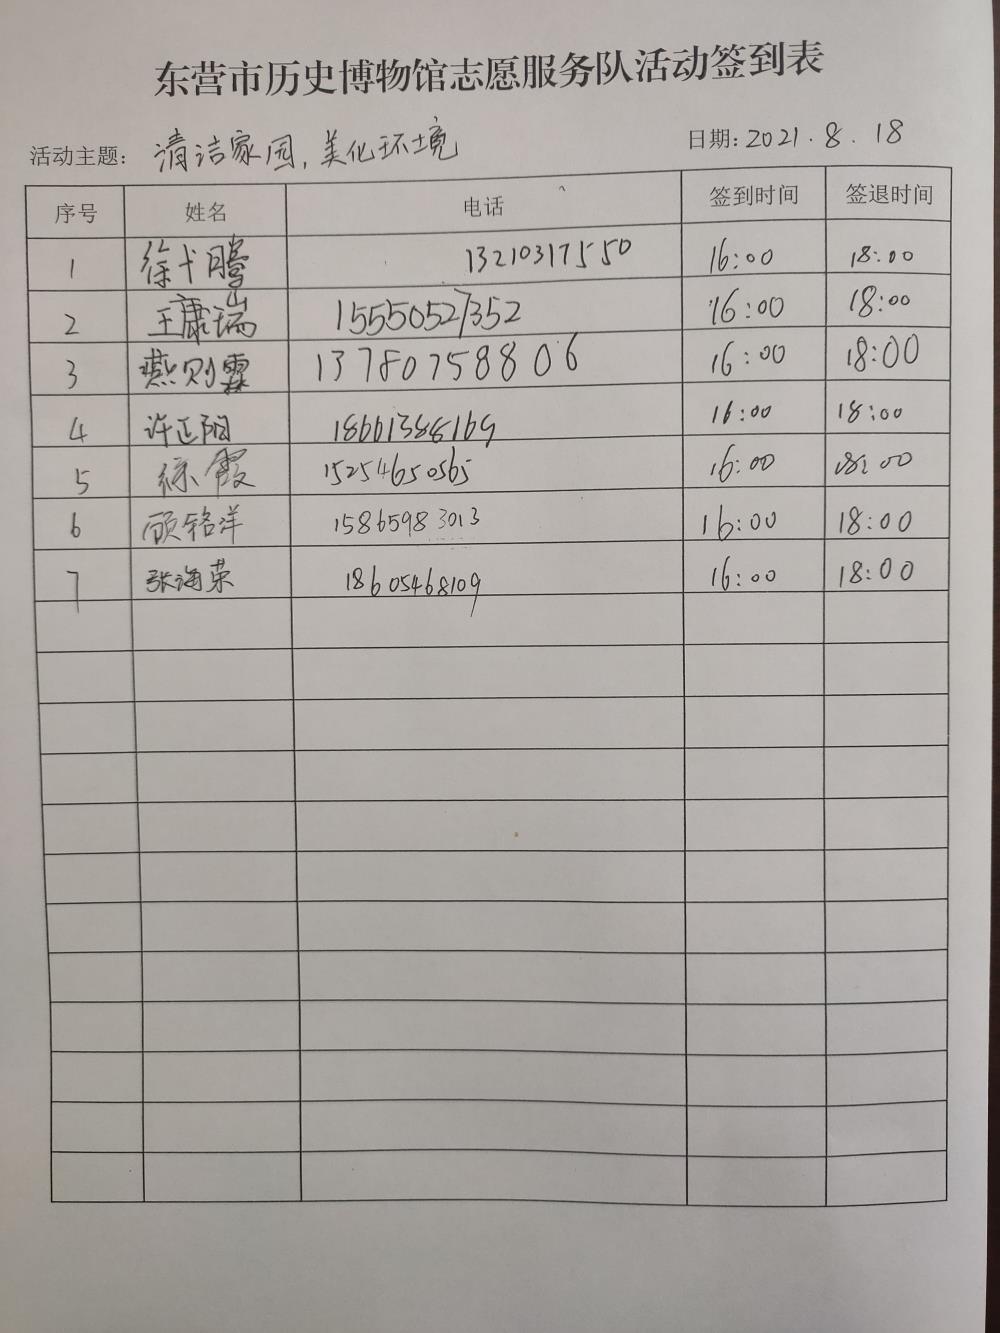 东营市历史博物馆志愿服务队活动签到表
活动主题: 清洁家园,美化环境 日期: 2021.8.18
序号 姓名 电话 签到时间 签退时间
1 徐弋腾 13210317550 16:00 18:00
2 王康瑞 15550527352 16:00 18:00
3 燕则霖 13780758806 16:00 18:00
4 许正阳 18661388169 16:00 18:00
5 徐霞 15254650565 16:00 18:00
6 顾铭洋 15865983013 16:00 18:00
7 张海荣 18605468109 16:00 18:00